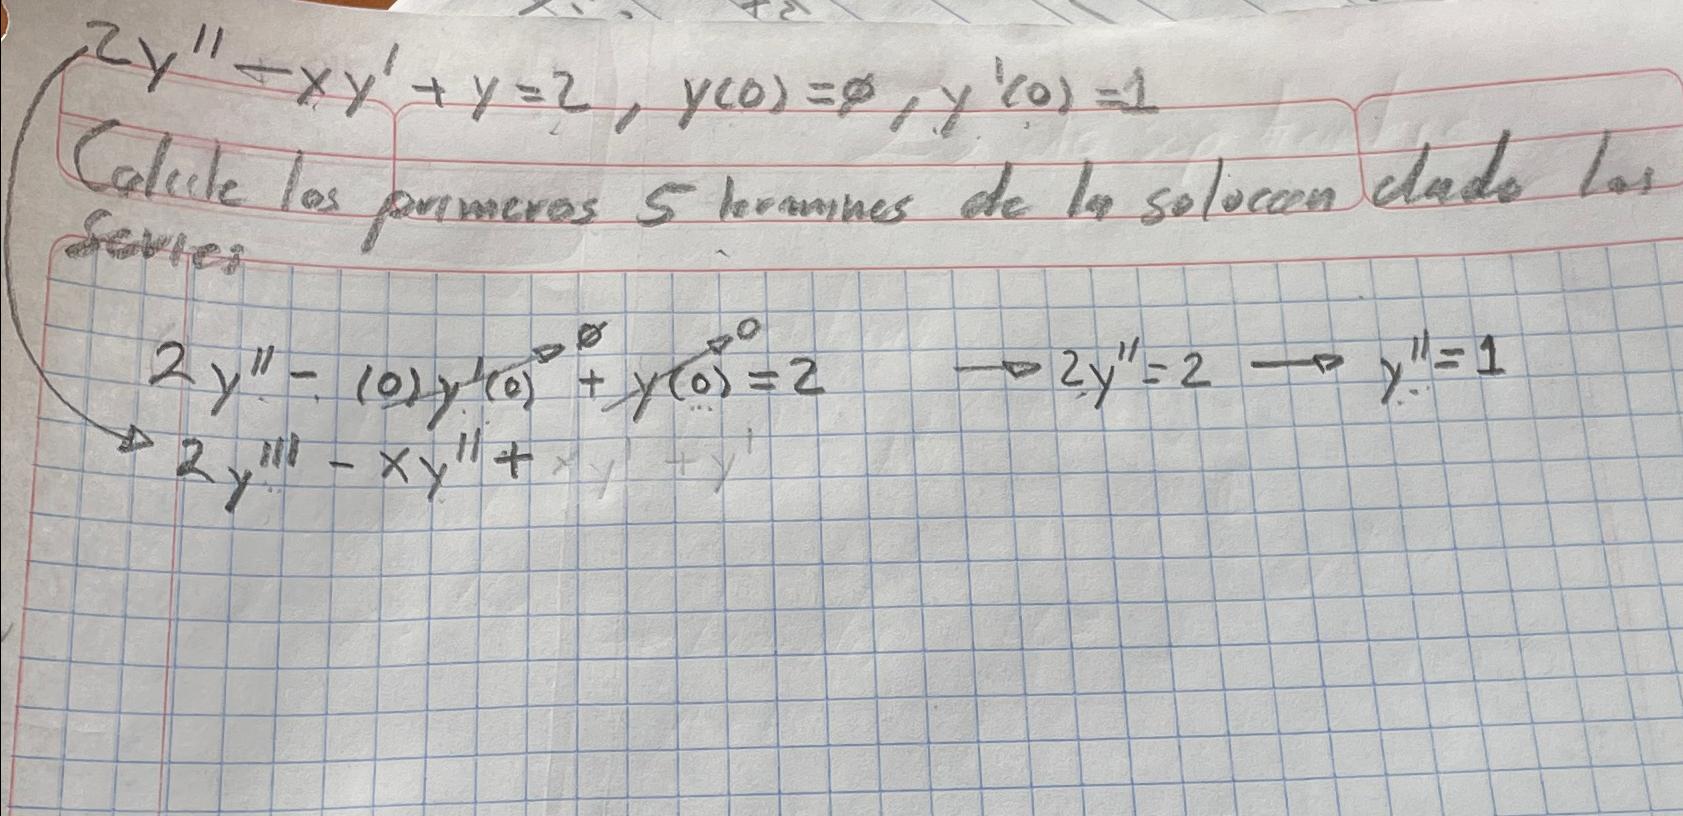 2y'' - xy' + y = 2, y(0) = ø, y'(0) = 1
Calcule los primeros 5 terminos de la solucion dado las
series
2y'' - (0)y'(0) → ø + y(0) → 0 = 2 → 2y'' = 2 → y'' = 1
2y''' - xy'' + xy' + y'